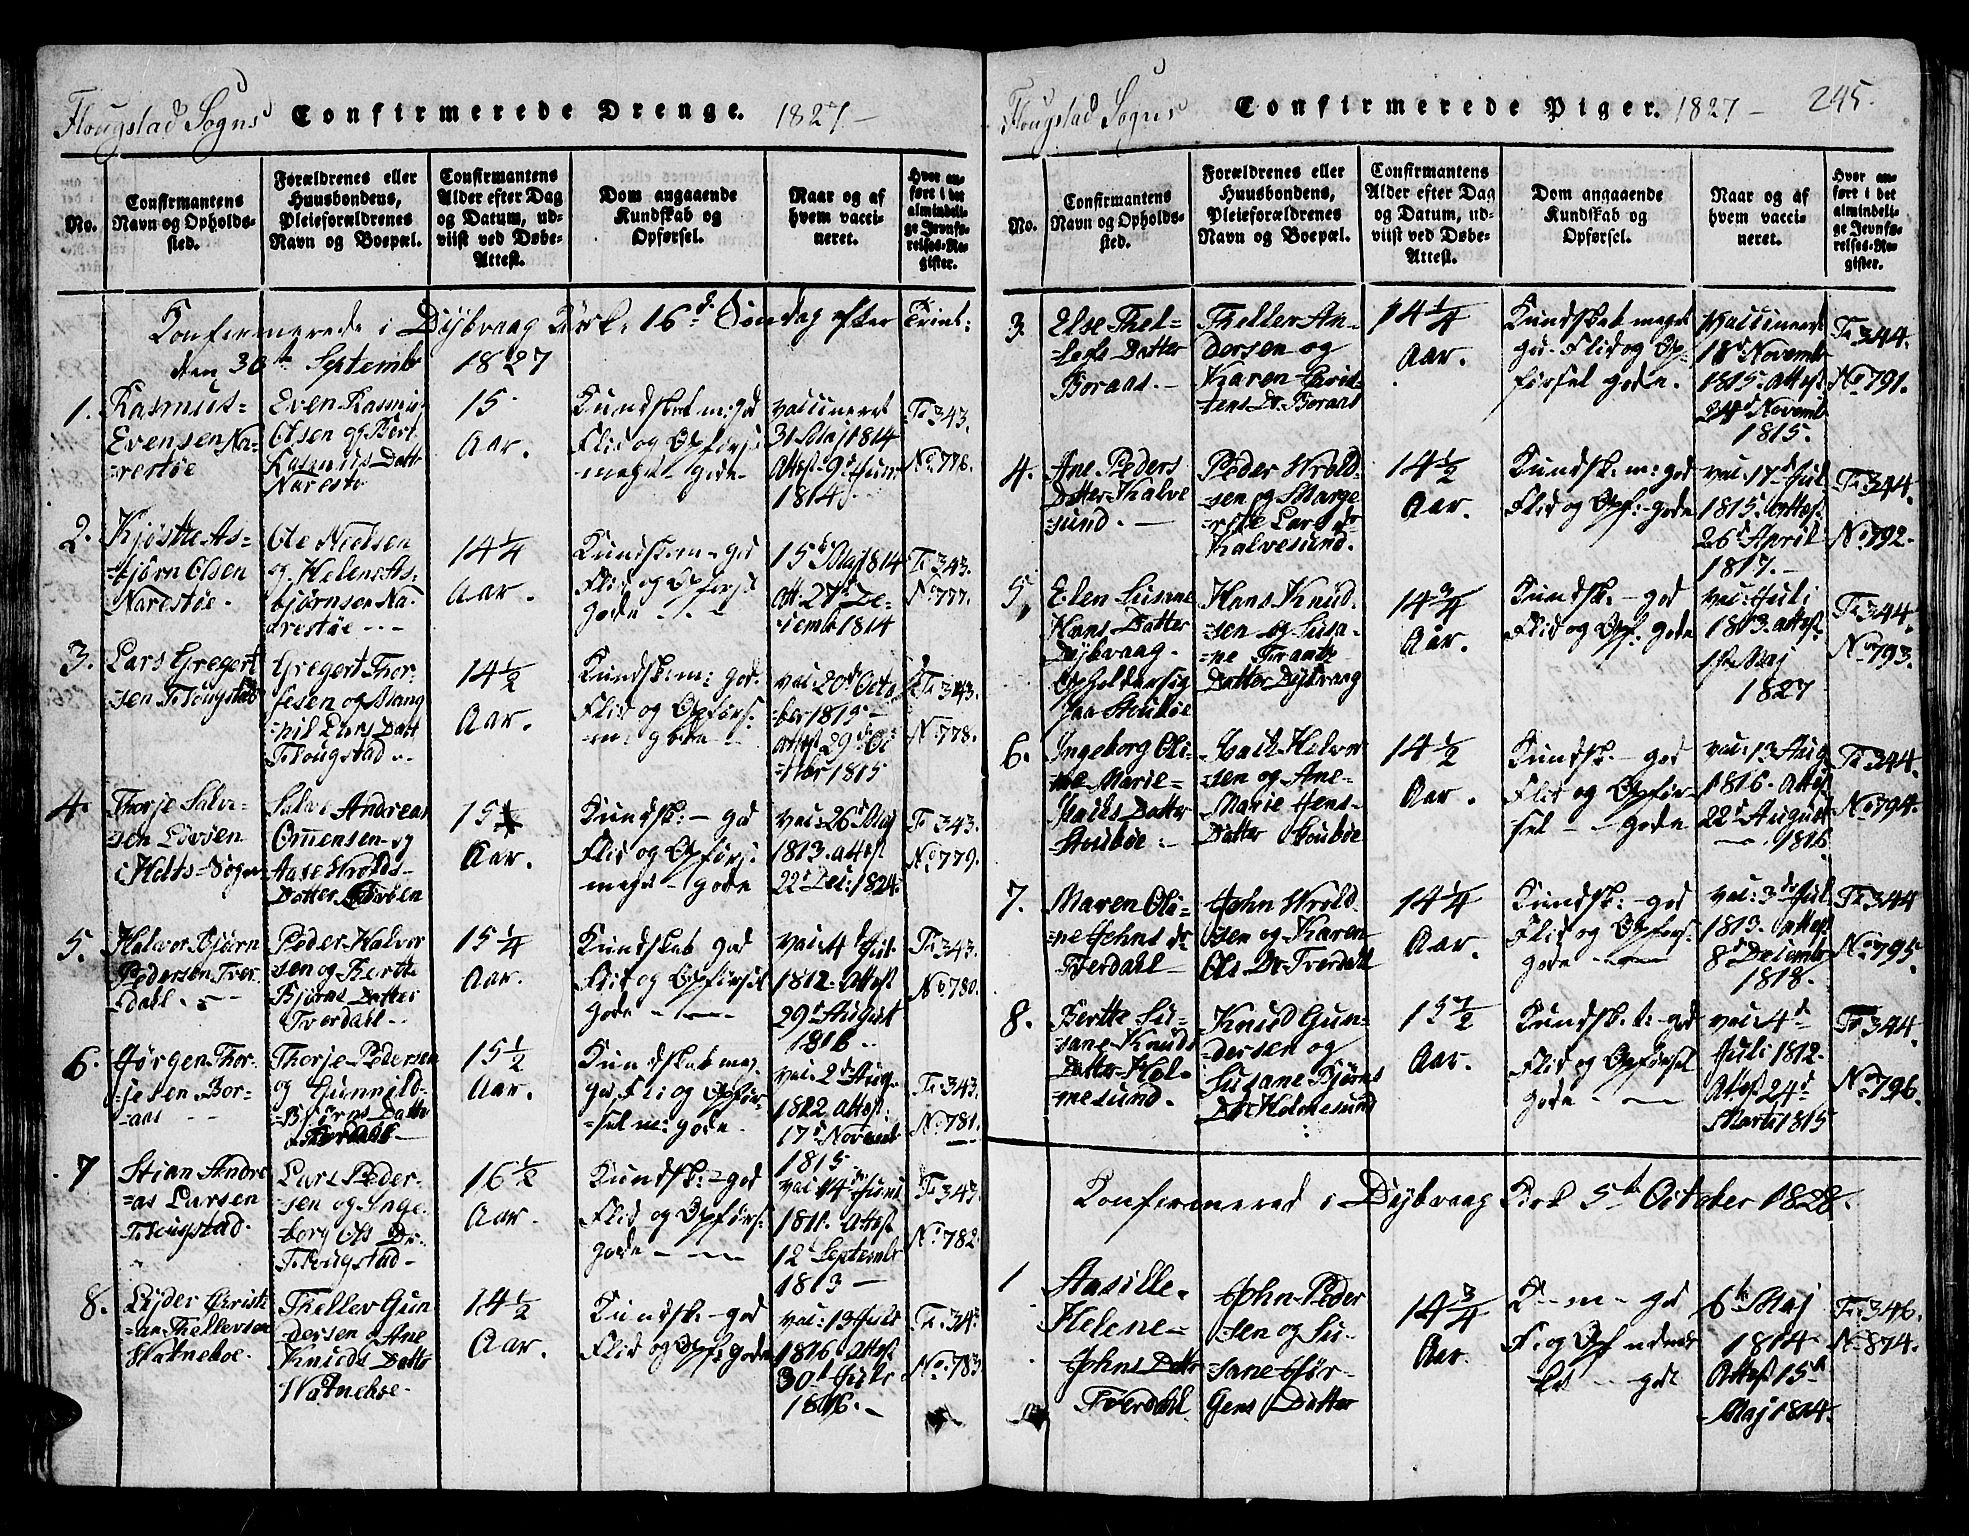 Flougstad Sogns Confirmerede Drenge. 1827 –
No.
Confirmantens
Navn og Opholds-
sted.
Forældrenes eller
Huusbondens,
Pleieforældrenes
Navn og Boepæl.
Confirmantens
Alder efter Dag
og Datum, ud-
viist ved Døbe-
Attest.
Dom angaaende
Kundskab og
Opførsel.
Naar og af
hvem vacci-
neret.
Hvor an-
ført i det
almindeli-
ge Jevnfø-
relses-Re-
gister.
Confirmerede i Dijbvaag Kirk: 16d Søndag efter Trinl:
den 30te Septembr 1827
1.
Rasmus
Evensen Na-
restøe
Even Rasmus
Olsen og Bert
Rasmus Datt
Naresto
15
Aar.
Kundskab m: god
Flid og Opførs:
meget – gode –
vaccineret
31 Maj 1814
Attest 9d Juni
1814.
Fo 343.
No 776.
2.
Kjøstte As-
bjørn Olsen
Narestøe.
Ole Nielsen
og Helene As-
bjørnsen Na-
restøe – –
14 1/4
Aar.
Kundsk m – god
Flid og Opførs:
gode – – –
15d Maj 1814
Att: 27d De-
cemb 1814
Fo 343.
No 777.
3.
Lars Gregert
sen Flougstad
Gregert Thor-
sesen og Mang
nil Lars Datt
Flougstad –
14 1/2
Aar.
Kundsk: m: god.
Flid og Opførs:
m: gode –
vac: 20d Octo
ber 1815 –
Attest 29d Oc
tbr 1815
Fo 343.
No 778.
4.
Thorje Salve-
sen Løvsen
i Holts Sogn
Salve Andreas
Omensen og
Aase Wrolds-
Datter
15
Aar.
Kundsk: – god
Flid og Opførs:
meget – gode
vac: 26d Maj
1813. Attest
22d Dec: 1824.
Fo 343.
No 779.
5.
Halvor Bjørn
Pedersen Tver-
dall. –
Peder Halvor
sen og Berthe
Bjørns Datter
Tverdall –
15 1/4
Aar.
Kundskab god
Flid og Opførsel
gode –
vac: 4d Jul
1812. Attest
29d August
1816 –
Fo 343.
No 780.
6.
Jørgen Thor-
jesen Bor-
aas –
Thorje Pedersen
og Gunnild
Bjørns Datter
15 1/2
Aar.
Kundskab meg-
get, Flid og Opfør-
sel m: gode.
vac: 2d Aug.
1812 Attest:
17d Novemb
1815
Fo 343.
No 781.
7
Stian Andre
as Larsen
Flougstad.
Lars Peder-
sen og Inge-
borg Ols Dr
Flougstad –
16 1/2
Aar.
Kundsk: – god
Flid og Opførs:
gode – –
vac: 14d Juni
1811. Attest
12d Septembr
1813 –
Fo 343.
No 782.
8.
Lijder Christi
an Thellevsen
Watneboe.
Thellev Gun
dersen og Ane
Knuds Datter
Watneboe –
14 1/2
Aar.
Kundsk – god
Flid og Opf: gode
vac: 13 Juli
1816 Attest
30d Juli
1816. –
Fo 343.
No 783.
Flougstad Sogns Confirmerede Piger. 1827 – 245.
No.
Confirmantens
Navn og Opholds-
sted.
Forældrenes eller
Huusbondens,
Pleieforældrenes
Navn og Boepæl.
Confirmantens
Alder efter Dag
og Datum, ud-
viist ved Døbe-
Attest.
Dom angaaende
Kundskab og
Opførsel.
Naar og af
hvem vacci-
neret.
Hvor an-
ført i det
almindeli-
ge Jevnfø-
relses-Re-
gister.
3.
Else Thel-
lefs Datter
Boraas. –
Thellev An-
dersen og
Karen Chris-
tens Dr. Boraas
14 1/4
Aar.
Kundskab meget
gd. Flid og Op-
førsel gode.
Vaccineret
18d Novembr
1815. Attest
24d Novemb
1815.
Fo 344.
No 791.
4.
Ane Peders
Datter Kalve
sund. –
Peder Wrold-
sen og Marge
rite Lars dr
Kalvesund.
14 1/2
Aar.
Kundsk: m: god
Flid og Opf: gode
vac: 17d Jul
1815. Attest
26d April
1817. –
Fo 344.
No 792.
5,
Elen Susane
Hans Datter
Dijbvaag.
Opholder sig
paa Stoubøe
Hans Knud-
sen og Susa-
ne Frants
Datter Dijbvaag
14 3/4
Aar.
Kundsk: – god
Flid og Opf: gode
vac: Juli
1813. Attest
1ste Maj
1827
Fo 344.
No 793.
6.
Ingeborg Oli-
ne Marie
Datter
Stoubøe –
Halvor
sen og Ane
Marie Jens
Datter Stoubøe
14 1/2
Aar.
Kundsk. – god
Flid og Opfør-
sel – – gode
vac: 13 Aug
1816. Attest
22d August
– 1816
Fo 344.
No 794.
7.
Maren Oli-
ne Johns dr
Tverdall –
John Wrold
sen og Karen
Ols Dr Tverdall
14 1/4
Aar.
Kundsk: – god
Flid og Opførs:
gode –
vac: 3d Jul
1813. Attest
8d Decembr
1818.
Fo 344
No 795.
8.
Berthe Su-
sane Knuds
Datter Hol-
mesund.
Knud Gun-
dersen og
Susane Bjørns
Dtr Holmesund
15 1/2
Aar.
Kundsk. t: god
Flid og Opførsel
gode – –
vac: 4d
Juli 1812.
Attest 24d
Marts 1815
Fo 344.
No 796.
Confirmered i Dijbvaag Kirk 5te October 1828.
1
Aasille
Helene
Johns Datt
Tverdahl.
John Peder
sen og Su-
sane Jør-
gens Datter
14 3/4
Aar.
K – m – god
F. og Opf udmær
ket – god
6te Maj
1814
Attest 15d
Maj 1814.
Fo 346.
No 874.